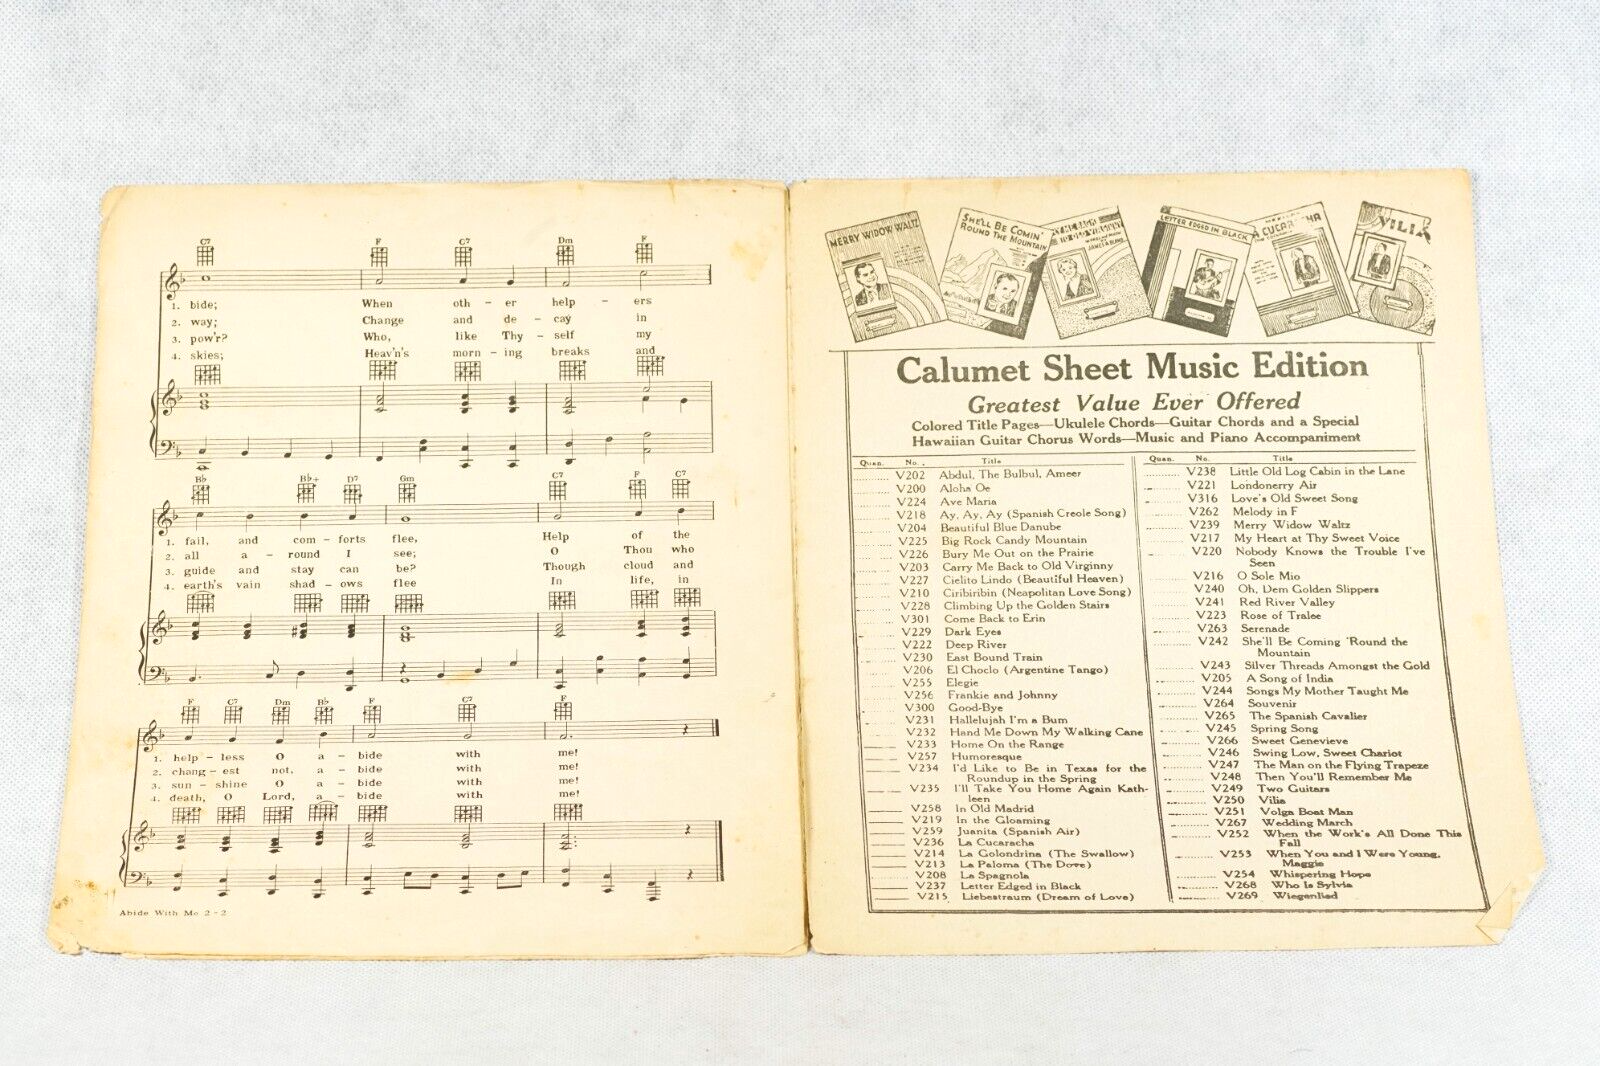 C7 F C7 Dm F
1. bide; When oth - er help - ers
2. way; Change and de - cay in
3. pow'r? Who, like Thy - self my
4. skies; Heav'n's morn - ing breaks and
Bb Bb+ D7 Gm C7 F C7
1. fail, and com - forts flee, Help of the
2. all a - round I see; O Thou who
3. guide and stay can be? Though cloud and
4. earth's vain shad - ows flee In life, in
F C7 Dm Bb F C7 F
1. help - less O a - bide with me!
2. chang - est not, a - bide with me!
3. sun - shine O a - bide with me!
4. death, O Lord, a - bide with me!
Abide With Me 2 - 2
MERRY WIDOW WALTZ
SHE'LL BE COMIN'
ROUND THE MOUNTAIN
TO OLD VIRGINNY
JAMES A. BLAND
LETTER EDGED IN BLACK
VILIA
Calumet Sheet Music Edition
Greatest Value Ever Offered
Colored Title Pages—Ukulele Chords—Guitar Chords and a Special
Hawaiian Guitar Chorus Words—Music and Piano Accompaniment
Quan. No. Title
V202 Abdul, The Bulbul, Ameer
V200 Aloha Oe
V224 Ave Maria
V218 Ay, Ay, Ay (Spanish Creole Song)
V204 Beautiful Blue Danube
V225 Big Rock Candy Mountain
V226 Bury Me Out on the Prairie
V203 Carry Me Back to Old Virginny
V227 Cielito Lindo (Beautiful Heaven)
V210 Ciribiribin (Neapolitan Love Song)
V228 Climbing Up the Golden Stairs
V301 Come Back to Erin
V229 Dark Eyes
V222 Deep River
V230 East Bound Train
V206 El Choclo (Argentine Tango)
V255 Elegie
V256 Frankie and Johnny
V300 Good-Bye
V231 Hallelujah I'm a Bum
V232 Hand Me Down My Walking Cane
V233 Home On the Range
V257 Humoresque
V234 I'd Like to Be in Texas for the
Roundup in the Spring
V235 I'll Take You Home Again Kath-
leen
V258 In Old Madrid
V219 In the Gloaming
V259 Juanita (Spanish Air)
V236 La Cucaracha
V214 La Golondrina (The Swallow)
V213 La Paloma (The Dove)
V208 La Spagnola
V237 Letter Edged in Black
V215 Liebestraum (Dream of Love)
Quan. No. Title
V238 Little Old Log Cabin in the Lane
V221 Londonerry Air
V316 Love's Old Sweet Song
V262 Melody in F
V239 Merry Widow Waltz
V217 My Heart at Thy Sweet Voice
V220 Nobody Knows the Trouble I've
Seen
V216 O Sole Mio
V240 Oh, Dem Golden Slippers
V241 Red River Valley
V223 Rose of Tralee
V263 Serenade
V242 She'll Be Coming 'Round the
Mountain
V243 Silver Threads Amongst the Gold
V205 A Song of India
V244 Songs My Mother Taught Me
V264 Souvenir
V265 The Spanish Cavalier
V245 Spring Song
V266 Sweet Genevieve
V246 Swing Low, Sweet Chariot
V247 The Man on the Flying Trapeze
V248 Then You'll Remember Me
V249 Two Guitars
V250 Vilia
V251 Volga Boat Man
V267 Wedding March
V252 When the Work's All Done This
Fall
V253 When You and I Were Young,
Maggie
V254 Whispering Hope
V268 Who Is Sylvia
V269 Wiegenlied